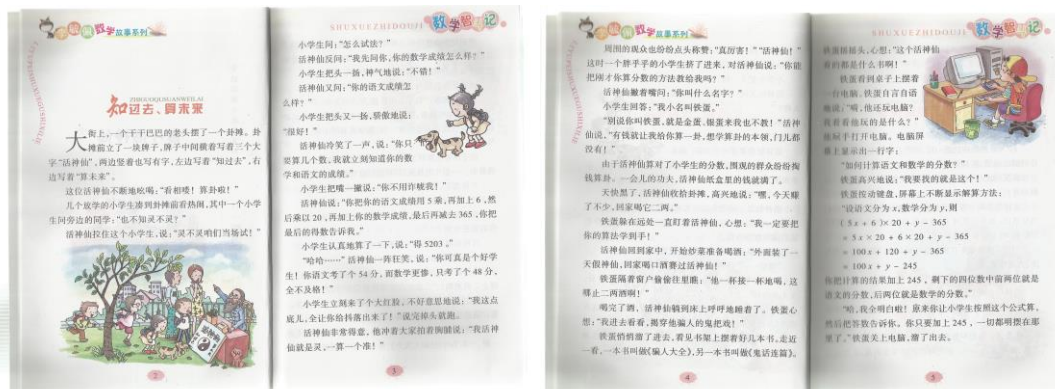 数学故事系列
知过去、算未来
大街上,一个干干巴巴的老头摆了一个卦摊。卦
摊前立了一块牌子,牌子中间横着写着三个大
字“活神仙”,两边竖着也写有字,左边写着“知过去”,右
边写着“算未来”。
这位活神仙不断地吆喝:“看相喽!算卦啦!”
几个放学的小学生凑到卦摊前看热闹,其中一个小学
生问旁边的同学:“也不知灵不灵?”
活神仙拉住这个小学生,说:“灵不灵咱们当场试!”
2
SHUXUEZHIDOUJI
数学智斗记
小学生问:“怎么试法?”
活神仙反问:“我先问你,你的数学成绩怎么样?”
小学生把头一扬,神气地说:“不错!”
活神仙又问:“你的语文成绩怎
么样?”
小学生把头又一扬,骄傲地说:
“很好!”
活神仙冷笑了一声,说:“你只
要算几个数,我就立刻知道你的数
学和语文的成绩。”
小学生把嘴一撇说:“你不用诈唬我!”
活神仙说:“你把你的语文成绩用5乘,再加上6,然
后乘以20,再加上你的数学成绩,最后再减去365,你把
最后的得数告诉我。”
小学生认真地算了一下,说:“得5203。”
“哈哈……”活神仙一阵狂笑,说:“你可真是个好学
生!你语文考了个54分,而数学更惨,只考了个48分,
全不及格!”
小学生立刻来了个大红脸,不好意思地说:“我这点
底儿,全让你给抖落出来了!”说完掉头就跑。
活神仙非常得意,他冲着大家拍着胸脯说:“我活神
仙就是灵,一算一个准!”
3
数学故事系列
周围的观众也纷纷点头称赞:“真厉害!”“活神仙!”
这时一个胖乎乎的小学生挤了进来,对活神仙说:“你能
把刚才你算分数的方法教给我吗?”
活神仙撇着嘴问:“你叫什么名字?”
小学生回答:“我小名叫铁蛋。”
“别说你叫铁蛋,就是金蛋、银蛋来我也不教!”活神
仙说,“有钱就让我给你算一卦,想学算卦的本领,门儿都
没有!”
由于活神仙算对了小学生的分数,围观的群众纷纷掏
钱算卦。一会儿的功夫,活神仙纸盒里的钱就满了。
天快黑了,活神仙收拾卦摊,高兴地说:“嘿,今天赚
了不少,回家喝它二两。”
铁蛋躲在远处一直盯着活神仙,心想:“我一定要把
你的算法学到手!”
活神仙回到家中,开始炒菜准备喝酒:“外面装了一
天假神仙,回家喝口酒赛过活神仙!”
铁蛋隔着窗户偷偷往里瞧:“他一杯接一杯地喝,这
哪止二两酒啊!”
喝完了酒,活神仙躺到床上呼呼地睡着了。铁蛋心
想:“我进去看看,揭穿他骗人的鬼把戏!”
铁蛋悄悄溜了进去,看见书架上摆着好几本书,走近
一看,一本书叫做《骗人大全》,另一本书叫做《鬼话连篇》。
4
SHUXUEZHIDOUJI
数学智斗记
铁蛋摇摇头,心想:“这个活神仙
看的都是什么书啊!”
铁蛋看到桌子上摆着
一台电脑,铁蛋自言自语
地说:“嗬,他还玩电脑?
我看看他玩的是什么?”
他伸手打开电脑。电脑屏
幕上显示出一行字:
“如何计算语文和数学的分数?”
铁蛋高兴地说:“我要找的就是这个!”
铁蛋按动键盘,屏幕上不断显示解算方法:
“设语文分为x,数学分为y,则
(5x+6)×20+y-365
=5x×20+6×20+y-365
=100x+120+y-365
=100x+y-245
你把计算的结果加上245,剩下的四位数中前两位就是
语文的分数,后两位就是数学的分数。”
“哈,我全明白啦!原来你让小学生按照这个公式算,
然后把答数告诉你。你只要加上245,一切都明摆在那
里了。”铁蛋关上电脑,溜了出去。
5